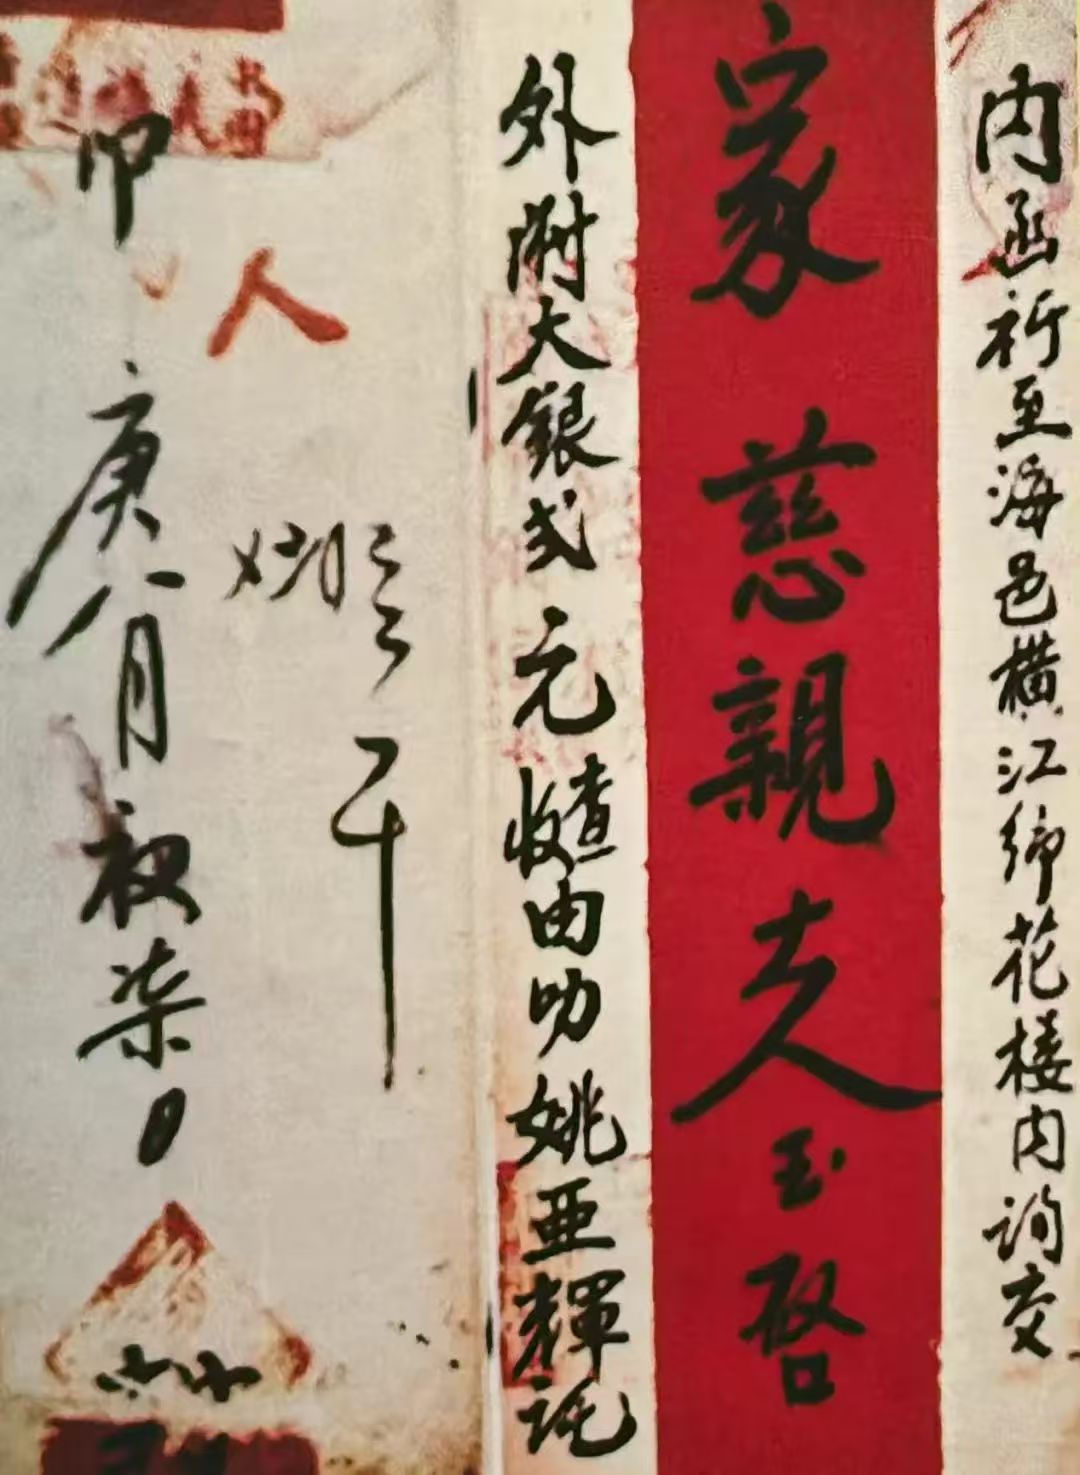 内函祈至海邑横江鄉花楼内詢交
家慈親大人玉啓
外附大銀弍元查收由叻姚亞輝託
人
庚八月初柒日